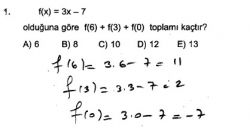 1. f(x) = 3x – 7
olduğuna göre f(6) + f(3) + f(0) toplamı kaçtır?
A) 6 B) 8 C) 10 D) 12 E) 13
f(6) = 3.6 - 7 = 11
f(3) = 3.3 - 7 = 2
f(0) = 3.0 - 7 = -7